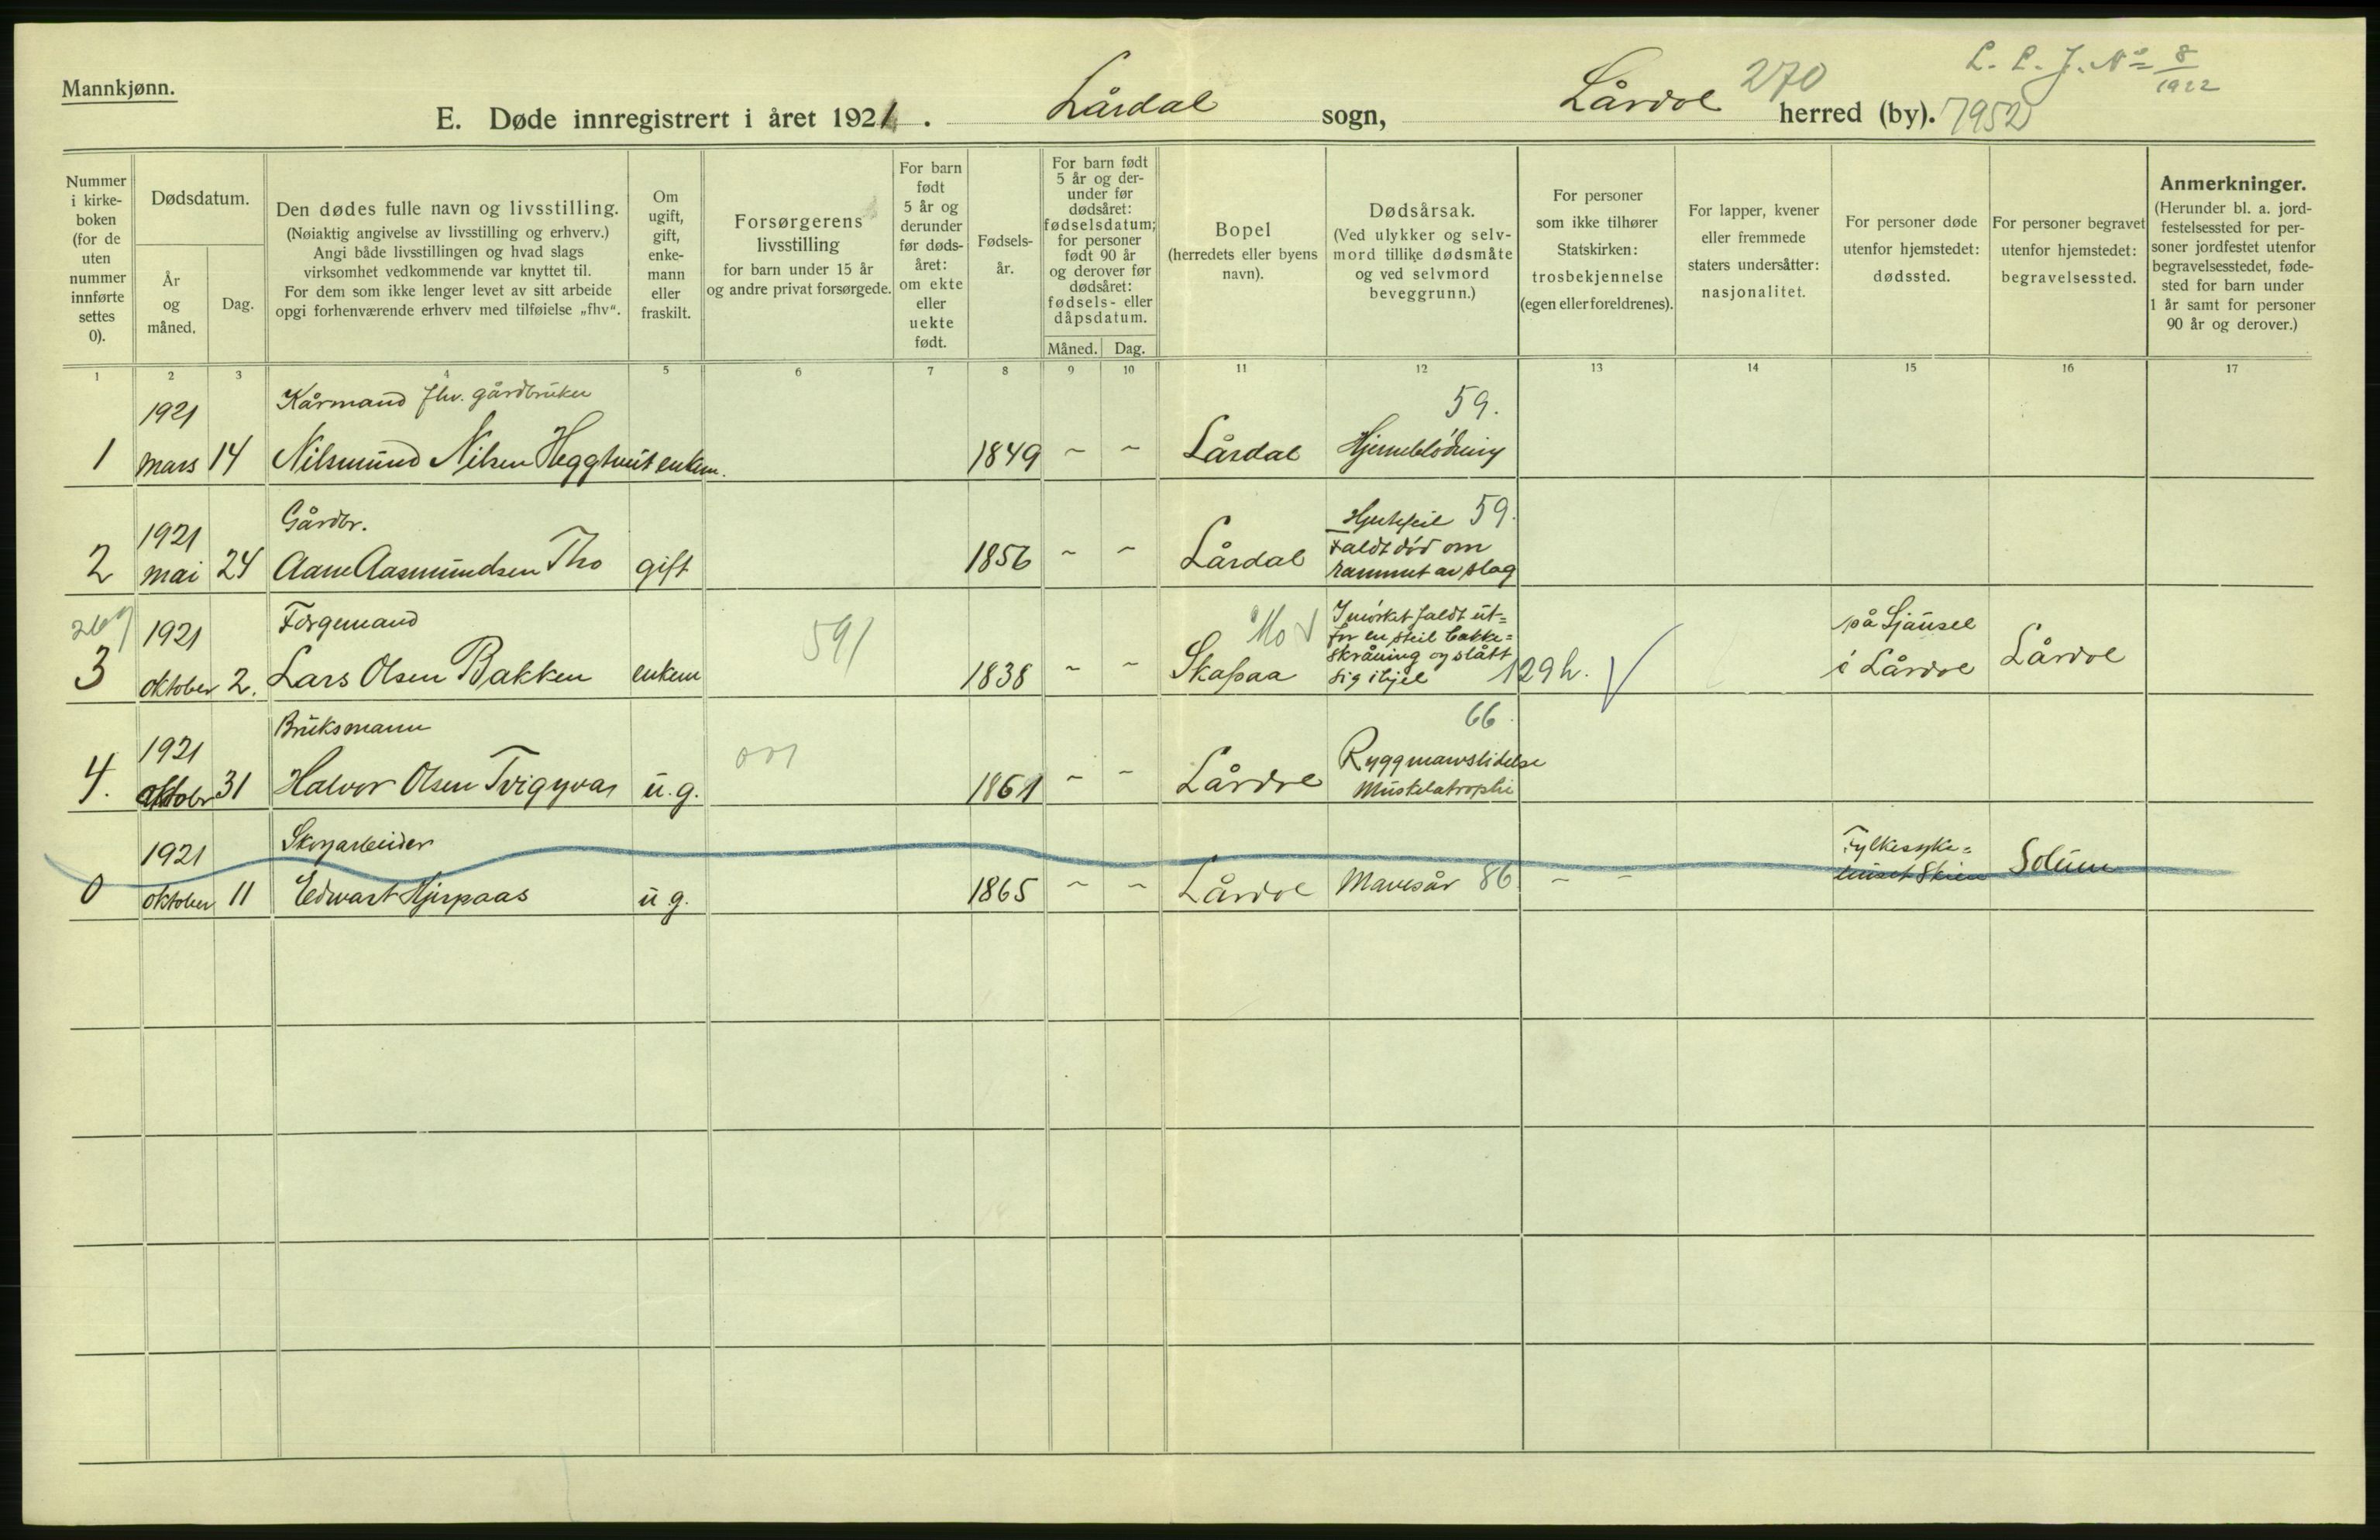 Mannkjønn.
L. L. J. № 8/1922
E. Døde innregistrert i året 1921. Lårdal sogn, Lårdal 270 herred (by). 7952
Nummer i kirke-boken (for de uten nummer innførte settes 0).
Dødsdatum.
År og måned.
Dag.
Den dødes fulle navn og livsstilling.
(Nøiaktig angivelse av livsstilling og erhverv.)
Angi både livsstillingen og hvad slags
virksomhet vedkommende var knyttet til.
For dem som ikke lenger levet av sitt arbeide
opgi forhenværende erhverv med tilføielse „fhv“.
Om ugift, gift, enke-mann eller fraskilt.
Forsørgerens livsstilling
for barn under 15 år
og andre privat forsørgede.
For barn født 5 år og derunder før døds-året: om ekte eller uekte født.
Fødsels-år.
For barn født 5 år og der-under før dødsåret: fødselsdatum; for personer født 90 år og derover før dødsåret: fødsels- eller dåpsdatum.
Måned. Dag.
Bopel
(herredets eller byens navn).
Dødsårsak.
(Ved ulykker og selv-
mord tillike dødsmåte
og ved selvmord
beveggrunn.)
For personer
som ikke tilhører
Statskirken:
trosbekjennelse
(egen eller foreldrenes).
For lapper, kvener
eller fremmede
staters undersåtter:
nasjonalitet.
For personer døde
utenfor hjemstedet:
dødssted.
For personer begravet
utenfor hjemstedet:
begravelsessted.
Anmerkninger.
(Herunder bl. a. jord-
festelsessted for per-
soner jordfestet utenfor
begravelsesstedet, føde-
sted for barn under
1 år samt for personer
90 år og derover.)
1 2 3 4 5 6 7 8 9 10 11 12 13 14 15 16 17
1921 Kårmand fhv. gårdbruker 59.
1 mars 14 Nilsmund Nilsen Heggtveit enkem. 1849 ~ ~ Lårdal Hjerneblødning
1921 Gårdbr. Hjertefeil 59.
2 mai 24 Aane Aasmundsen Tho gift 1856 ~ ~ Lårdal Faldt død om
rammet av slag
267 1921 Forgemand 591 Mo I mørket faldt ut=
for en steil bakke=
skråning og slått
sig ihjel
3 oktober 2. Lars Olsen Bakken enkem 1838 ~ ~ Skafsaa 129h. på Sjausel
i Lårdal Lårdal
1921 Bruksmann 001 66.
4. oktobr 31 Halvor Olsen Trigyvas u.g. 1861 ~ ~ Lårdal Ryggmarvslidelse
Muskelatrophi
1921 Skogarbeider Fylkessyke=
huset Skien Solum
0 oktober 11 Edvart Hjerpaas u.g. 1865 ~ ~ Lårdal Mavesår 86 ~ ~